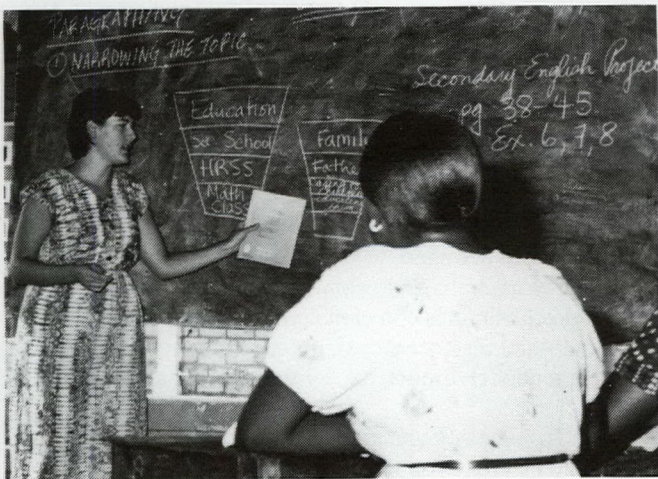 PARAGRAPHING
① NARROWING THE TOPIC
Education
Sec School
HRSS
Math
Class
Famil
Fathe
Secondary English Project
pg 38-45
Ex. 6, 7, 8